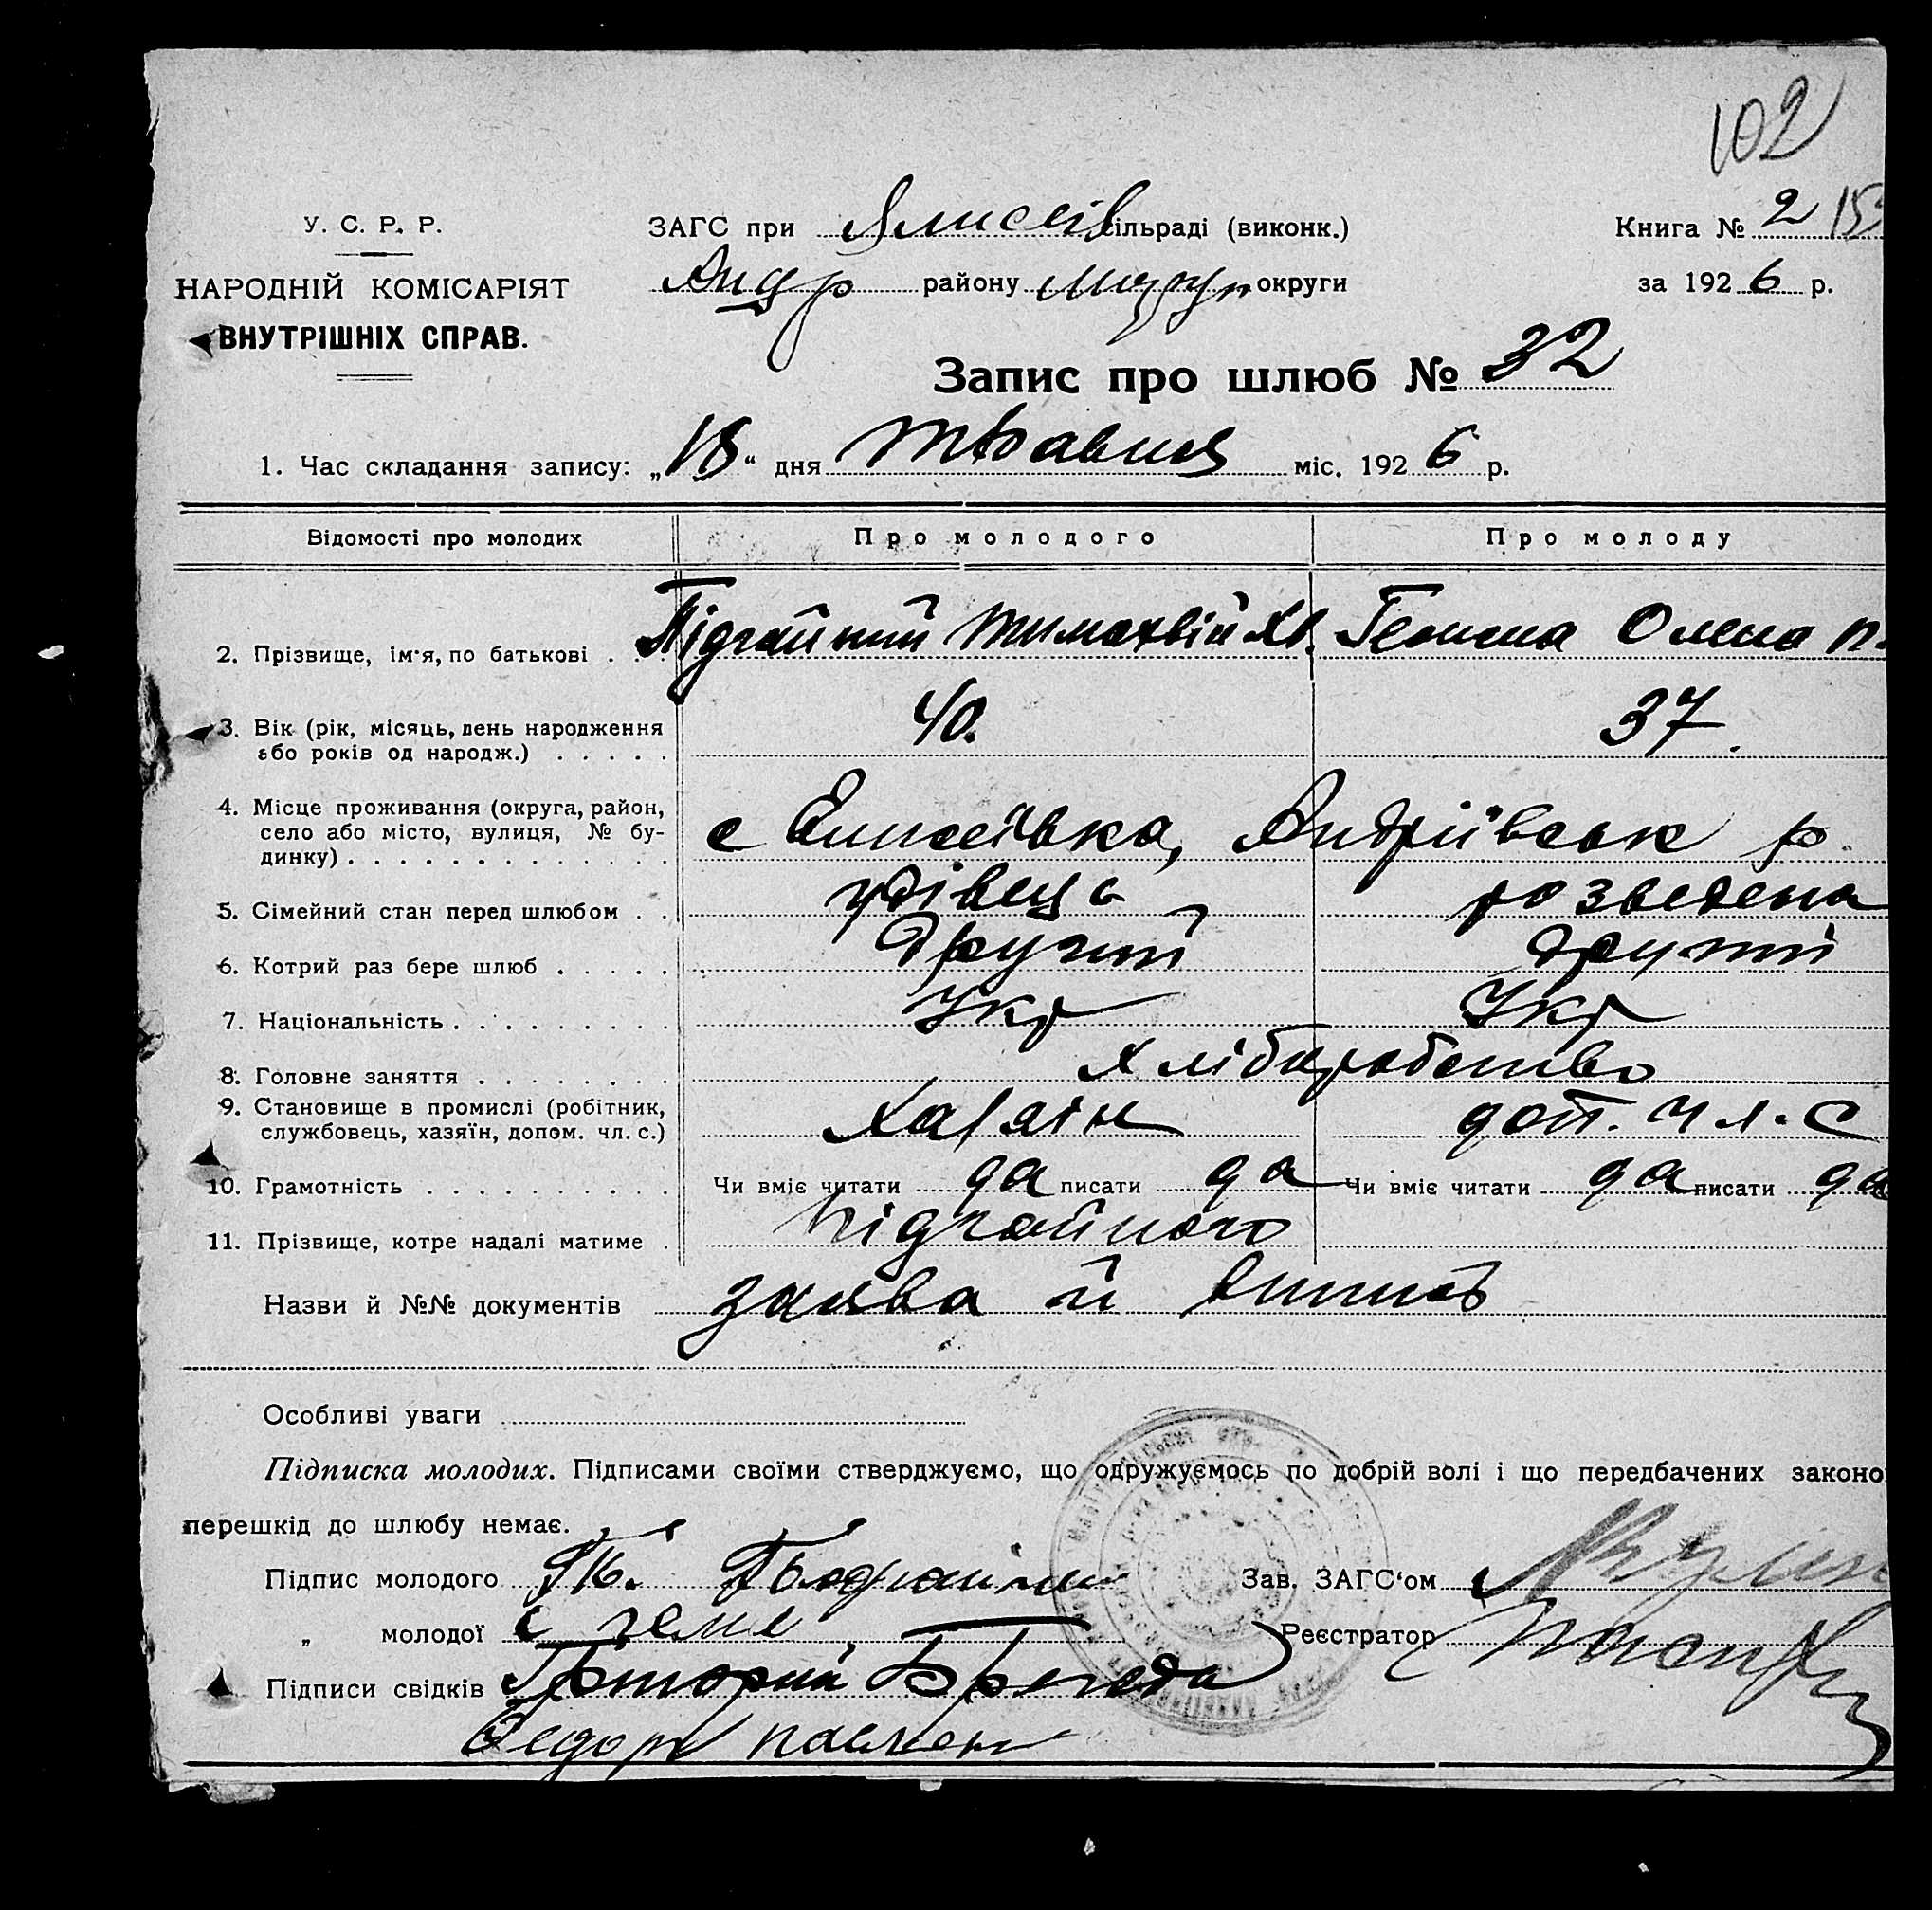 102
У. С. Р. Р.
НАРОДНІЙ КОМІСАРІЯТ
ВНУТРІШНІХ СПРАВ.
ЗАГС при Ялисеїв сільраді (виконк.)
Андр району округи
Книга № 2
за 1926 р.
Запис про шлюб № 32
1. Час складання запису: „18“ дня травня міс. 1926 р.
Відомості про молодих Про молодого Про молоду
2. Прізвище, ім'я, по батькові . . . Підгайний Тимохвій Олена П.
3. Вік (рік, місяць, день народження 40. 37.
або років од народж.) . . . . .
4. Місце проживання (округа, район,
село або місто, вулиця, № бу- с Елисеївка, Андріївськ р.
динку) . . . . . . . . . . . . .
5. Сімейний стан перед шлюбом . . удівець розведена
6. Котрий раз бере шлюб . . . . . другий другий
7. Національність . . . . . . . . . Укр Укр
8. Головне заняття . . . . . . . . Хліборобство
9. Становище в промислі (робітник,
службовець, хазяїн, допом. чл. с.) Хазяін доп. чл. с
10. Грамотність . . . . . . . . . . Чи вміє читати да писати да Чи вміє читати да писати да
11. Прізвище, котре надалі матиме . Підгайного
Назви й №№ документів заява й
Особливі уваги
Підписка молодих. Підписами своїми стверджуємо, що одружуємось по добрій волі і що передбачених законо
перешкід до шлюбу немає.
Підпис молодого Зав. ЗАГС'ом
„ молодої Реєстратор
Підписи свідків Григорий
Федор